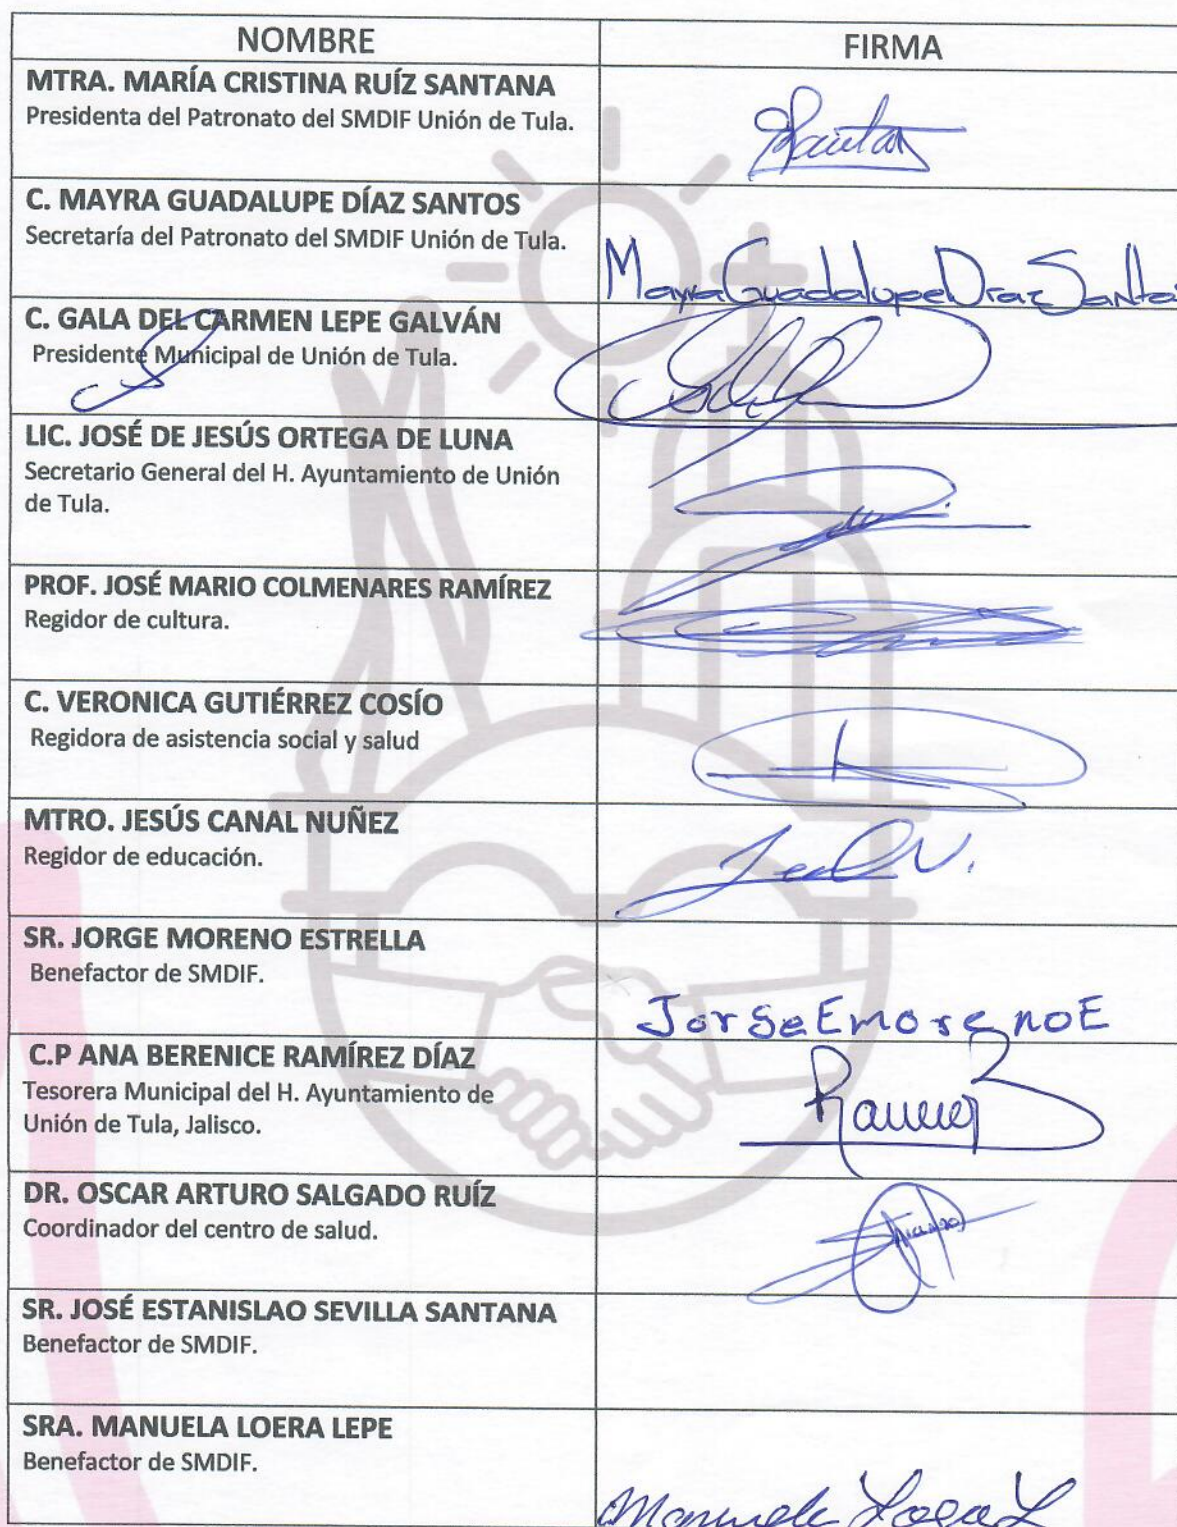 NOMBRE
FIRMA
MTRA. MARÍA CRISTINA RUÍZ SANTANA
Presidenta del Patronato del SMDIF Unión de Tula.
C. MAYRA GUADALUPE DÍAZ SANTOS
Secretaría del Patronato del SMDIF Unión de Tula.
Mayra Guadalupe Diaz Santos
C. GALA DEL CARMEN LEPE GALVÁN
Presidente Municipal de Unión de Tula.
LIC. JOSÉ DE JESÚS ORTEGA DE LUNA
Secretario General del H. Ayuntamiento de Unión
de Tula.
PROF. JOSÉ MARIO COLMENARES RAMÍREZ
Regidor de cultura.
C. VERONICA GUTIÉRREZ COSÍO
Regidora de asistencia social y salud
MTRO. JESÚS CANAL NUÑEZ
Regidor de educación.
SR. JORGE MORENO ESTRELLA
Benefactor de SMDIF.
Jorge Emoreno E
C.P ANA BERENICE RAMÍREZ DÍAZ
Tesorera Municipal del H. Ayuntamiento de
Unión de Tula, Jalisco.
DR. OSCAR ARTURO SALGADO RUÍZ
Coordinador del centro de salud.
SR. JOSÉ ESTANISLAO SEVILLA SANTANA
Benefactor de SMDIF.
SRA. MANUELA LOERA LEPE
Benefactor de SMDIF.
Manuela Loera L